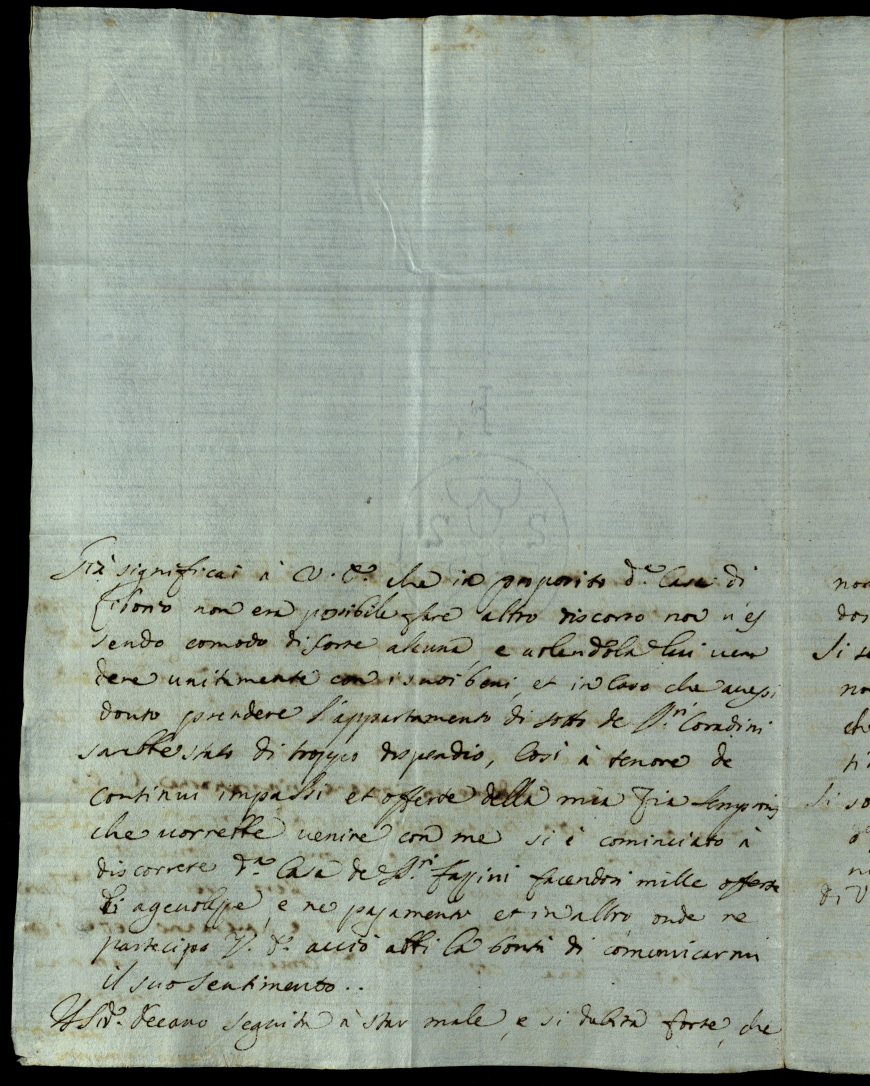 Già significai à V. E. che in proposito d.ª Casa di
non era possibile fare altro discorso non v'es
sendo comodo di sorte alcuna e volendola lui ven
dere unitamente con i suoi beni, et in Caso che avessi
douto prendere l'appartamento di sotto de Sig.ri Coradini
sarebbe stato di troppo dispendio, Così à tenore de
continui impassi et offerte della mia Zia
che vorrebbe venire con me si è cominciato à
discorrere d.ª Casa de Sig.ri Fassini facendosi mille offerte
di e ne pagamento et in altro onde ne
partecipo V. E. acciò abbi la bontà di comunicarmi
il suo sentimento..
Il Sig.r Decano seguita à star male, e si dubita forte, che
non
dos
Si se
no
ch
ti
Si so
o
n
di V